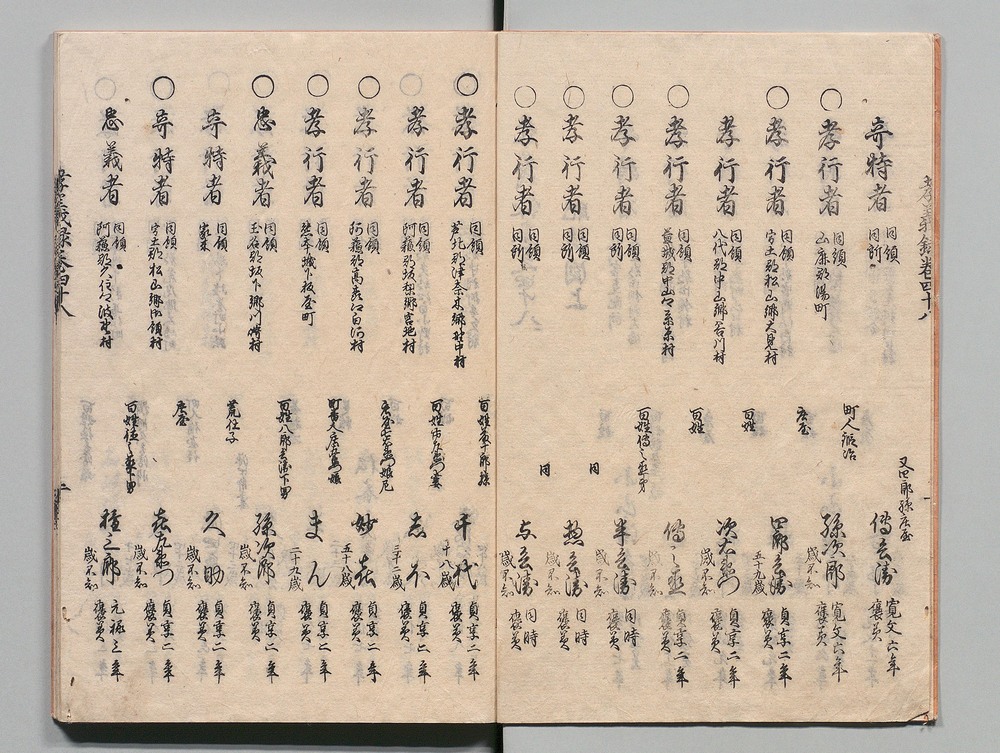 奇特者 同領同所 又四郎孫庄屋 傳兵衛 寛文六年褒美
○孝行者 同領山鹿郡湯町 町人鍛冶 孫次郎 歳不知 寛文六年褒美
○孝行者 同領宇土郡松山郷大見村 庄屋 四郎兵衛 五十九歳 貞享二年褒美
孝行者 同領八代郡中山郷谷川村 百姓 次右衛門 歳不知 貞享二年褒美
○孝行者 同領益城郡中山 村 百姓 傳之丞 貞享二年褒美
○孝行者 同領同所 百姓傳之丞弟 半兵衛 歳不知 同時褒美
○孝行者 同領同所 同 惣兵衛 歳不知 同時褒美
○孝行者 同領同所 同 与兵衛 歳不知 同時褒美
孝義録巻四十八
○孝行者 同領芦北郡津奈木郷 中村 百姓 十郎孫 千代 十八歳 貞享二年褒美
○孝行者 同領阿蘇郡坂梨郷宮地村 百姓市左衛門妻 貞享二年褒美
○孝行者 同領阿蘇郡高森 村 尼 妙 五十歳 貞享二年褒美
○孝行者 同領熊本城下板屋町 まん 二十九歳 貞享二年褒美
○忠義者 同領玉名郡坂下郷川崎村 百姓八郎兵衛下男 孫次郎 歳不知 貞享二年褒美
奇特者 同領家来 荒仕子 久助 歳不知 貞享二年褒美
○奇特者 同領宇土郡松山郷 領村 庄屋 喜左衛門 歳不知 貞享二年褒美
忠義者 同領阿蘇郡久住 村 下男 権三郎 歳不知 元禄三年褒美
孝義録巻四十八